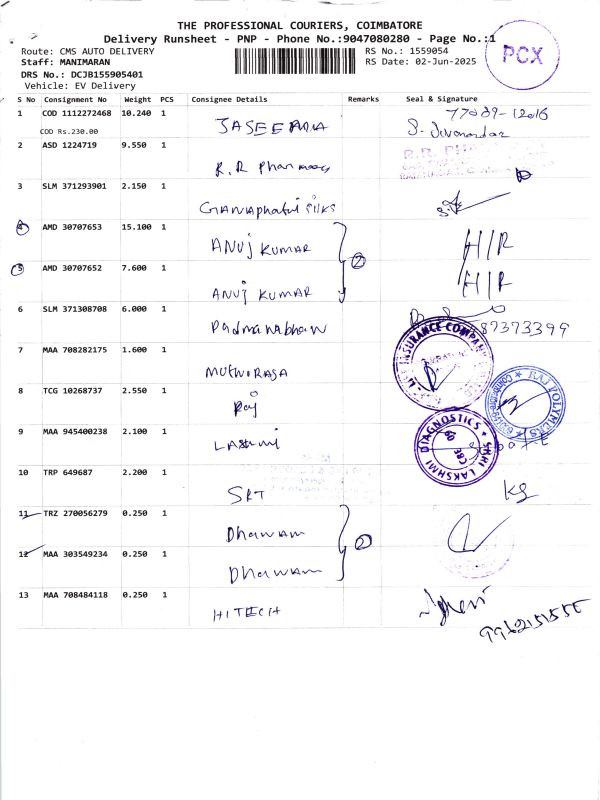 THE PROFESSIONAL COURIERS, COIMBATORE
Delivery Runsheet - PNP - Phone No.:9047080280 - Page No.:1
Route: CMS AUTO DELIVERY
RS No.: 1559054
Staff: MANIMARAN
RS Date: 02-Jun-2025
DRS No.: DCJB155905401
Vehicle: EV Delivery
PCX
S No Consignment No Weight PCS Consignee Details Remarks Seal & Signature
1 COD 1112272468 10.240 1 JASEEMA
COD Rs.230.00
2 ASD 1224719 9.550 1 R.R Pharmacy
3 SLM 371293901 2.150 1 Ganaphathi silks
4 AMD 30707653 15.100 1 ANUJ KUMAR H/R
2
5 AMD 30707652 7.600 1 ANUJ KUMAR H/R
6 SLM 371308708 6.000 1 Padmanabhan 87373399
7 MAA 708282175 1.600 1 MUTHURAJA
INSURANCE COMPANY
8 TCG 10268737 2.550 1 Raj
RAJ POLYMERS
9 MAA 945400238 2.100 1 Laxmi
SHRI LAKSHMI DIAGNOSTICS
CBE
10 TRP 649687 2.200 1 SRT
11 TRZ 270056279 0.250 1 Dhawam
2
12 MAA 303549234 0.250 1 Dhawam
13 MAA 708484118 0.250 1 HITECH